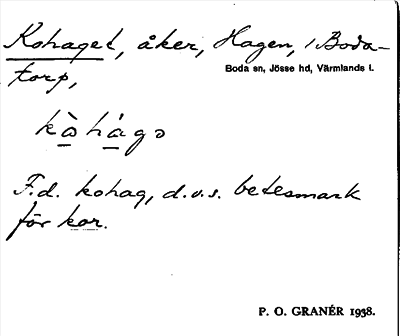 Kohaget, åker, Hagen, i Boda-
Boda sn, Jösse hd, Värmlands l.
torp,
kòhágə
F.d. kohag, d.v.s. betesmark
för kor.
P. O. GRANÉR 1938.